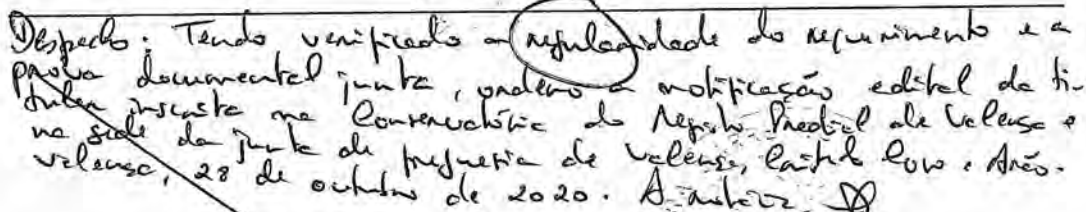 Despacho. Tendo verificado a regularidade do requerimento e a
prova documental junta, ordeno a notificação edital da ti-
tular inscrita na Conservatória do Registo Predial de Valença e
na sede da junta de freguesia de Valença, Cristelo Covo e Arão.
Valença, 28 de outubro de 2020. A notária